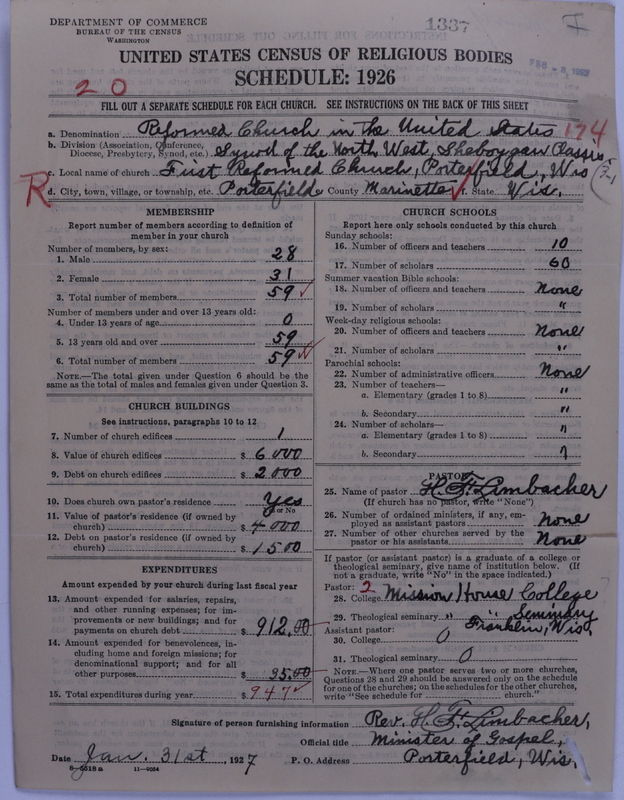 DEPARTMENT OF COMMERCE
BUREAU OF THE CENSUS
WASHINGTON
1337
I
UNITED STATES CENSUS OF RELIGIOUS BODIES
SCHEDULE: 1926
20
FILL OUT A SEPARATE SCHEDULE FOR EACH CHURCH. SEE INSTRUCTIONS ON THE BACK OF THIS SHEET
a. Denomination Reformed Church in the United States 174
b. Division (Association, Conference, Diocese, Presbytery, Synod, etc.) Synod of the North West, Sheboygan Classis
c. Local name of church First Reformed Church, Porterfield, Wis
R d. City, town, village, or township, etc. Porterfield County Marinette f. State Wis.
MEMBERSHIP
Report number of members according to definition of
member in your church
Number of members, by sex:
1. Male 28
2. Female 31
3. Total number of members 59
Number of members under and over 13 years old:
4. Under 13 years of age 0
5. 13 years old and over 59
6. Total number of members 59
NOTE.—The total given under Question 6 should be
same as the total of males and females given under Question 3.
CHURCH BUILDINGS
See instructions, paragraphs 10 to 12
7. Number of church edifices 1
8. Value of church edifices $ 6000
9. Debt on church edifices $ 2000
10. Does church own pastor's residence Yes
Yes or No
11. Value of pastor's residence (if owned by
church) $ 4000
12. Debt on pastor's residence (if owned by
church) $ 1500
EXPENDITURES
Amount expended by your church during last fiscal year
13. Amount expended for salaries, repairs,
and other running expenses; for im-
provements or new buildings; and for
payments on church debt $ 912.00
14. Amount expended for benevolences, in-
cluding home and foreign missions; for
denominational support; and for all
other purposes $ 35.00
15. Total expenditures during year $ 947
CHURCH SCHOOLS
Report here only schools conducted by this church
Sunday schools:
16. Number of officers and teachers 10
17. Number of scholars 60
Summer vacation Bible schools:
18. Number of officers and teachers None
19. Number of scholars "
Week-day religious schools:
20. Number of officers and teachers None
21. Number of scholars "
Parochial schools:
22. Number of administrative officers None
23. Number of teachers—
a. Elementary (grades 1 to 8) "
b. Secondary "
24. Number of scholars—
a. Elementary (grades 1 to 8) "
b. Secondary "
PASTOR
25. Name of pastor H. F. Limbacher
(If church has no pastor, write "None")
26. Number of ordained ministers, if any, em-
ployed as assistant pastors None
27. Number of other churches served by the
pastor or his assistants None
If pastor (or assistant pastor) is a graduate of a college or
theological seminary, give name of institution below. (If
not a graduate, write "No" in the space indicated.)
Pastor: 2
28. College Mission House College
29. Theological seminary " " Seminary
Assistant pastor: Franklin, Wis.
30. College 0
31. Theological seminary 0
NOTE.—Where one pastor serves two or more churches,
Questions 28 and 29 should be answered only on the schedule
for one of the churches; on the schedules for the other churches,
write "See schedule for church."
Signature of person furnishing information Rev. H. F. Limbacher,
Official title Minister of Gospel,
Date Jan. 31st, 1927 P. O. Address Porterfield, Wis.
8-5518a 11-9054